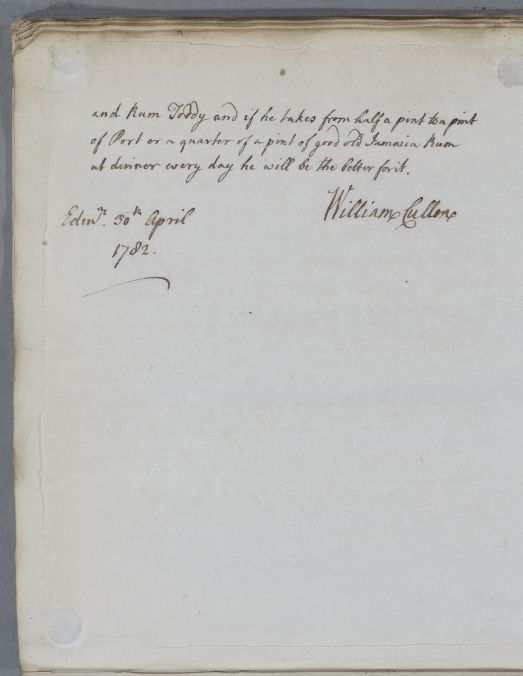 and Rum Toddy and if he takes from half a pint to a pint
of Port or a quarter of a pint of good old Jamaica Rum
at dinner every day he will be the better for it.
William Cullen
Edinr. 30th April
1782.